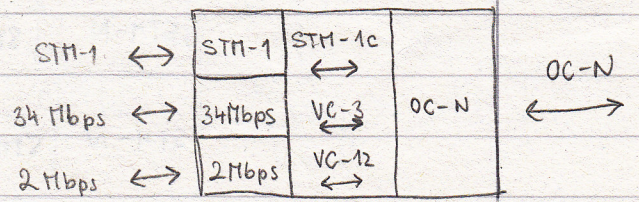 STM-1 STM-1 STM-1c OC-N
34 Mbps 34Mbps VC-3 OC-N
2 Mbps 2Mbps VC-12